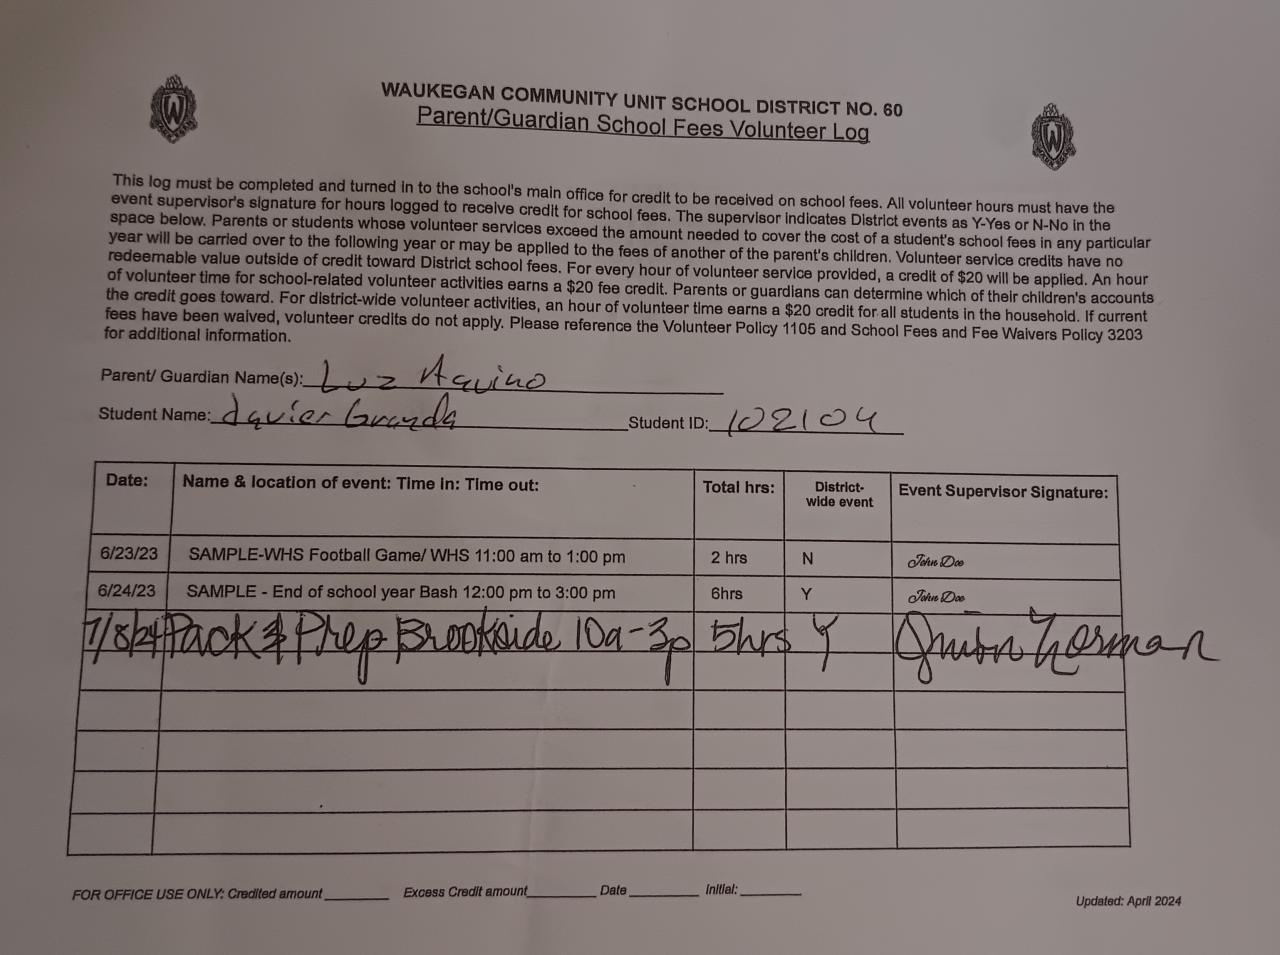 WAUKEGAN COMMUNITY UNIT SCHOOL DISTRICT NO. 60
Parent/Guardian School Fees Volunteer Log
This log must be completed and turned in to the school's main office for credit to be received on school fees. All volunteer hours must have the
event supervisor's signature for hours logged to receive credit for school fees. The supervisor indicates District events as Y-Yes or N-No in the
space below. Parents or students whose volunteer services exceed the amount needed to cover the cost of a student's school fees in any particular
year will be carried over to the following year or may be applied to the fees of another of the parent's children. Volunteer service credits have no
redeemable value outside of credit toward District school fees. For every hour of volunteer service provided, a credit of $20 will be applied. An hour
of volunteer time for school-related volunteer activities earns a $20 fee credit. Parents or guardians can determine which of their children's accounts
the credit goes toward. For district-wide volunteer activities, an hour of volunteer time earns a $20 credit for all students in the household. If current
fees have been waived, volunteer credits do not apply. Please reference the Volunteer Policy 1105 and School Fees and Fee Waivers Policy 3203
for additional information.
Parent/ Guardian Name(s): Luz Aquino
Student Name: Javier Granda Student ID: 102104
Date: Name & location of event: Time in: Time out: Total hrs: District-wide event Event Supervisor Signature:
6/23/23 SAMPLE-WHS Football Game/ WHS 11:00 am to 1:00 pm 2 hrs N John Doe
6/24/23 SAMPLE - End of school year Bash 12:00 pm to 3:00 pm 6hrs Y John Doe
7/8/24 Pack & Prep Brookside 10a-3p 5hrs Y Norman
FOR OFFICE USE ONLY: Credited amount Excess Credit amount Date Initial:
Updated: April 2024